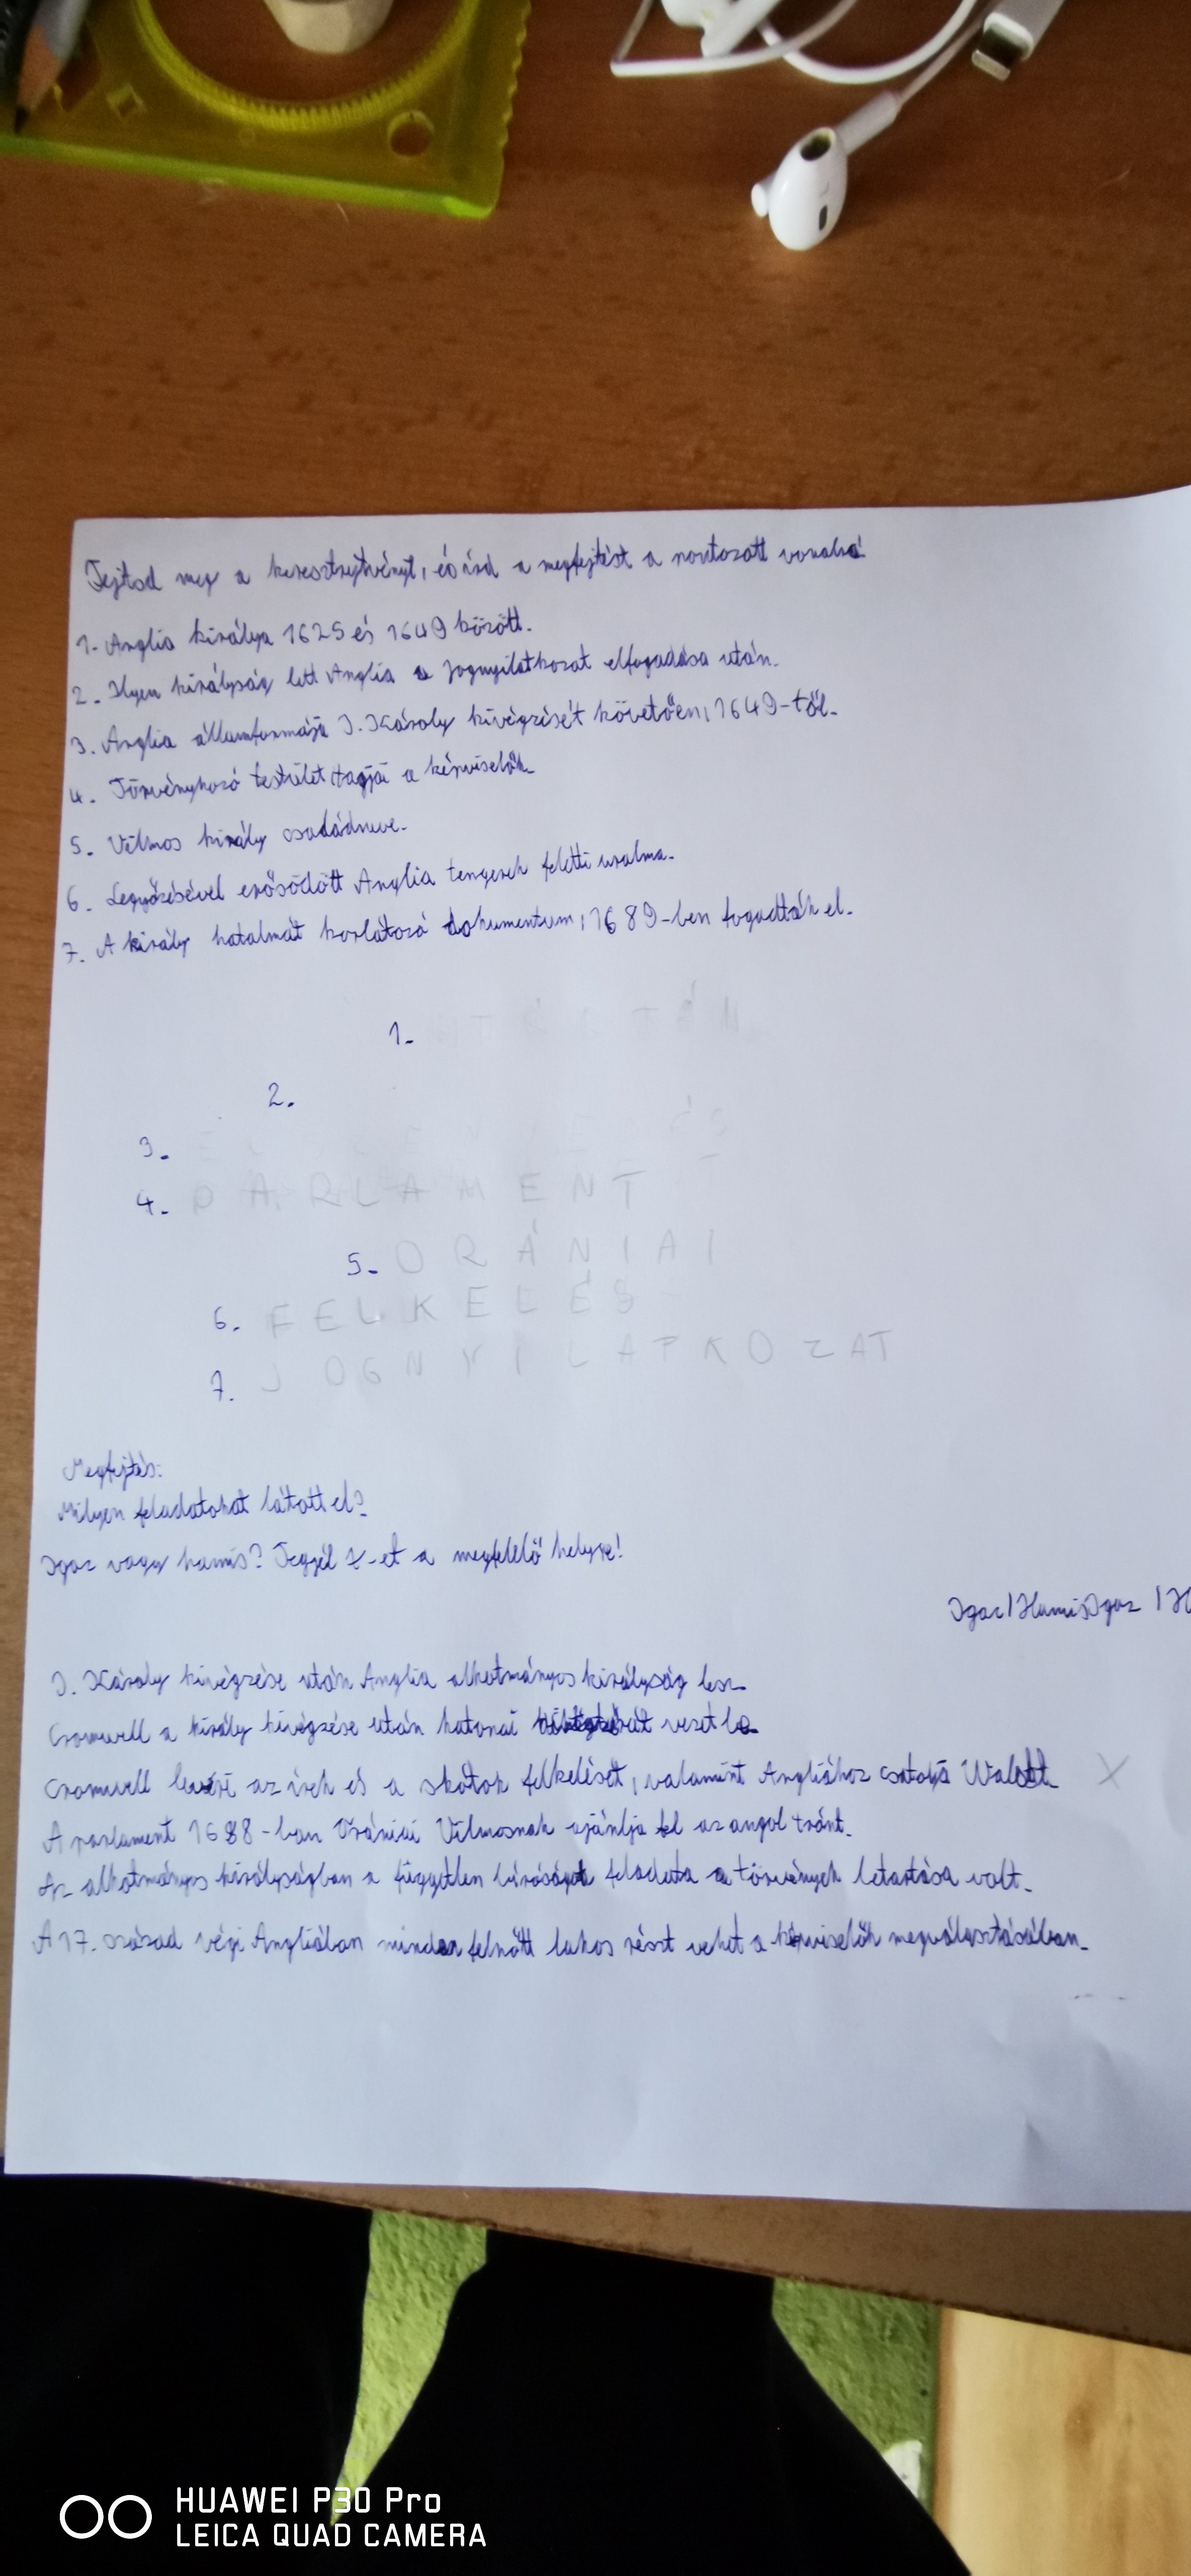 Fejtsd meg a keresztrejtvényt, és írd a megfejtést a pontozott vonalra!
1. Anglia királya 1625 és 1649 között.
2. Ilyen királyság lett Anglia a Jognyilatkozat elfogadása után.
3. Anglia államformája I. Károly kivégzését követően, 1649-től.
4. Törvényhozó testület, tagjai a képviselők
5. Vilmos király családneve.
6. Legyőzésével erősödött Anglia tengerek feletti uralma.
7. A király hatalmát korlátozó dokumentum, 1689-ben fogadták el.
1.
2.
3.
4. PARLAMENT
5. ORÁNIAI
6. FELKELÉS
7. JOGNYILATKOZAT
Megfejtés:
Milyen feladatokat látott el?
Igaz vagy hamis? Tegyél x-et a megfelelő helyre!
Igaz | Hamis Igaz | H
I. Károly kivégzése után Anglia alkotmányos királyság lesz
Cromwell a király kivégzése után katonai vezet be
Cromwell leveri az írek és a skótok felkelését, valamint Angliához csatolja X
A parlament 1688-ban Orániai Vilmosnak ajánlja fel az angol trónt.
Az alkotmányos királyságban a független bíróságok feladata a törvények betartása volt.
A 17. század végi Angliában minden felnőtt lakos részt vehet a képviselők megválasztásában.
HUAWEI P30 Pro
LEICA QUAD CAMERA